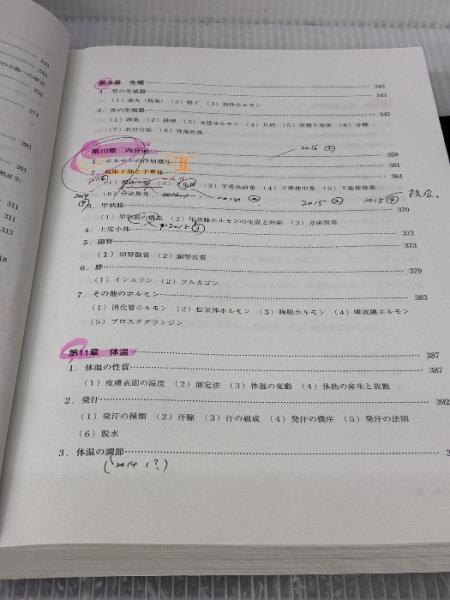 341
第9章 生殖 343
1. 男の生殖器 343
(1) 睾丸(精巣) (2) 精子 (3) 男性ホルモン
2. 女の生殖器 345
(1) 卵巣 (2) 排卵 (3) 女性ホルモン (4) 月経 (5) 受精と着床 (6) 分娩
(7) 乳汁分泌 (8) 性染色体
2016
第10章 内分泌 359
1. ホルモンの作用機序 361
2. 視床下部と下垂体 364
(1) 視床下部 (2) (3) 下垂体前葉 (4) 下垂体中葉 (5) 下垂体後葉
(6) 分泌異常
2014
2015
2015
3. 甲状腺 370
(1) 甲状腺の構造 (2) 甲状腺ホルモンの生成と分泌 (3) 分泌異常
4. 上皮小体 372
2015
5. 副腎 373
(1) 副腎髄質 (2) 副腎皮質
6. 膵 379
(1) インスリン (2) グルカゴン
7. その他のホルモン 383
(1) 消化管ホルモン (2) 松果体ホルモン (3) 胸腺ホルモン (4) 唾液腺ホルモン
(5) プロスタグランジン
第11章 体温 387
1. 体温の性質 387
(1) 皮膚表面の温度 (2) 測定法 (3) 体温の変動 (4) 体熱の産生と放散
2. 発汗 392
(1) 発汗の種類 (2) 汗腺 (3) 汗の組成 (4) 発汗の機序 (5) 発汗の法則
(6) 脱水
3. 体温の調節
(2014 1?)